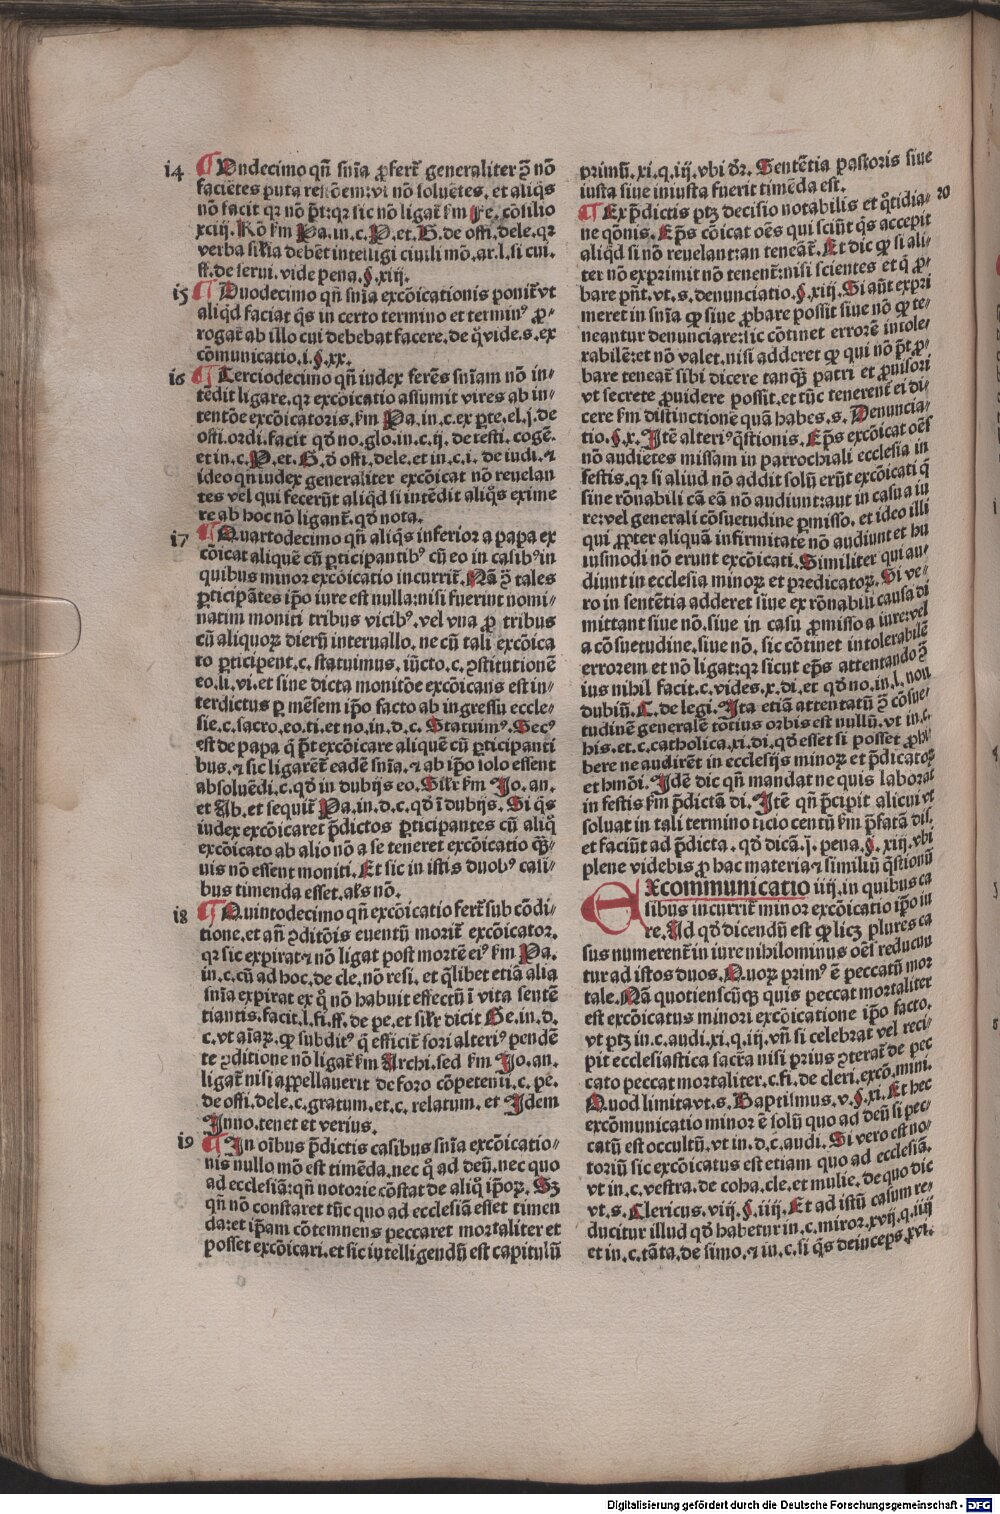 i4 ¶ Undecimo qñ snĩa ꝓfert᷑ generaliter ꝯ̃ nõ
faciẽtes puta reſõem: vt nõ soluẽtes. et aliqͥs
nõ facit qꝛ nõ pͫt: qꝛ sic nõ ligat᷑ ẜm Fe. cõsilio
xciij. Rõ ẜm Pa. in. c. P. et. G. de offi. dele. qꝛ
verba silĩa debẽt intelligi ciuili mõ. ar. l. si cui.
ff. de serui. vide pena. §. xiij.
i5 ¶ Duodecimo qñ snĩa excõicationis ponit᷑ vt
aliqͥd faciat qͥs in certo termino et terminꝰ ꝓ-
rogat᷑ ab illo cui debebat facere. de qͦ vide. s. ex
cõmunicatio. i. §. xx.
i6 ¶ Terciodecimo qñ iudex ferẽs snĩam nõ in-
tẽdit ligare. qꝛ excõicatio assumit vires ab in-
tentõe excõicatoris. ẜm Pa. in. c. ex ꝑte. el. j. de
offi. ordi. facit qd̛ no. glo. in. c. ij. de testi. cogẽ.
et in. c. P. et. G. d̛ offi. dele. et in. c. i. de iudi. ⁊
ideo qñ iudex generaliter excõicat nõ reuelan
tes vel qui fecerũt aliqͥd si intẽdit aliqͦs exime
re ab hoc nõ ligant᷑. qd̛ nota.
i7 ¶ Quartodecimo qñ aliqͥs inferior a papa ex
cõicat aliquẽ cũ ꝑticipantibꝰ cũ eo in casibꝰ in
quibus minor excõicatio incurrit᷑. Nã ꝯ̃ tales
ꝑticipãtes ip̃o iure est nulla: nisi fuerint nomi-
natim moniti tribus vicibꝰ. vel vna ꝓ tribus
cũ aliquoꝝ dierũ interuallo. ne cũ tali excõica
to ꝑticipent. c. statuimus. iũcto. c. ꝯstitutionẽ
eo. li. vi. et sine dicta monitõe excõicans est in-
terdictus ꝑ mẽsem ip̃o facto ab ingressu eccle-
sie. c. sacro. eo. ti. et no. in. d. c. Statuimꝰ. Secꝰ
est de papa qͥ pͫt excõicare aliquẽ cũ ꝑticipanti
bus. ⁊ sic ligarẽt᷑ eadẽ snĩa. ⁊ ab ip̃o solo essent
absoluẽdi. c. qd̛ in dubijs eo. Silr̃ ẜm Jo. an.
et Ab. et sequit᷑ Pa. in. d. c. qd̛ ĩ dubijs. Si qͥs
iudex excõicaret p̃dictos ꝑticipantes cũ aliqͦ
excõicato ab alio nõ a se teneret excõicatio qꝫ̃-
uis nõ essent moniti. Et sic in istis duobꝰ casi-
bus timenda esset. al̛s nõ.
i8 ¶ Quintodecimo qñ excõicatio fert᷑ sub cõdi-
tione. et añ ꝯditõis euentũ morit᷑ excõicator.
qꝛ sic expirat ⁊ nõ ligat post mortẽ eiꝰ ẜm Pa.
in. c. cũ ad hoc. de cle. nõ resi. et qͣlibet etiã alia
snĩa expirat ex qͦ nõ habuit effectũ ĩ vita sentẽ
tiantis. facit. l. fi. ff. de pe. et silr̃ dicit Ge. in. d.
c. vt aĩaꝝ. ꝙ subditꝰ qͥ efficit᷑ fori alteriꝰ pendẽ
te ꝯditione nõ ligat᷑ ẜm Archi. sed ẜm Jo. an.
ligat᷑ nisi appellauerit de foro cõpetenti. c. pe.
de offi. dele. c. gratum. et. c. relatum. et Idem
Inno. tenet et verius.
i9 ¶ In oĩbus p̃dictis casibus snĩa excõicatio-
nis nullo mõ est timẽda. nec qͦ ad deũ. nec quo
ad ecclesiã: qñ notorie cõstat de aliqͦ ip̃oꝝ. Sꝫ
qñ nõ constaret tũc quo ad ecclesiã esset timen
da: et ip̃am cõtemnens peccaret mortaliter et
posset excõicari. et sic intelligendũ est capitulũ
primũ. xi. q. iij. vbi dr̃. Sentẽtia pastoris siue
iusta siue iniusta fuerit timẽda est.
20 ¶ Ex p̃dictis ptꝫ decisio notabilis et qͦtidia-
ne qõnis. Ep̃s cõicat oẽs qui sciũt qͥs accepit
aliqͥd si nõ reuelant: an teneant᷑. Et dic ꝙ si ali-
ter nõ exprimit nõ tenent᷑: nisi scientes et qͥ ꝓ-
bare pñt. vt. s. denunciatio. §. xiij. Si aũt expri
meret in snĩa ꝙ siue ꝓbare possit siue nõ ꝙ te-
neantur denunciare: sic cõtinet errorẽ intole-
rabilẽ: et nõ valet. nisi adderet ꝙ qui nõ pͫt ꝓ-
bare teneat᷑ sibi dicere tanqꝫ̃ patri et ꝓuisori
vt secrete ꝓuidere possit. et tũc tenerent᷑ ei di-
cere ẜm distinctionẽ quã habes. s. Denuncia-
tio. §. x. Itẽ alteriꝰ qͣstionis. Ep̃s excõicat oẽs
nõ audiẽtes missam in parrochiali ecclesia in
festis. qꝛ si aliud nõ addit solũ erũt excõicati qͥ
sine rõnabili cã eã nõ audiunt: aut in casu a iu
re: vel generali cõsuetudine ꝑmisso. et ideo illi
qui ꝓpter aliquã infirmitatẽ nõ audiunt et hu
iusmodi nõ erunt excõicati. Similiter qui au-
diunt in ecclesia minoꝝ et predicatoꝝ. Si ve-
ro in sentẽtia adderet siue ex rõnabili causa di
mittant siue nõ. siue in casu ꝑmisso a iure: vel
a cõsuetudine. siue nõ. sic cõtinet intolerabilẽ
errorem et nõ ligat: qꝛ sicut ep̃s attentando ꝯ̃
ius nihil facit. c. vides. x. di. et qd̛ no. in. l. non
dubiũ. C. de legi. Ita etiã attentatũ ꝯ̃ cõsue-
tudinẽ generalẽ totius orbis est nullũ. vt in. c.
his. et. c. catholica. xi. di. qd̛ esset si posset ꝓhi
bere ne audirẽt in ecclesijs minoꝝ et p̃dicatoꝝ
et hmõi. Idẽ dic qñ mandat ne quis laborat
in festis ẜm p̃dictã di. Itẽ qñ p̃cipit alicui vt
soluat in tali termino ticio centũ ẜm p̃fatã dis.
et faciũt ad p̃dicta. qd̛ dicã. j. pena. §. xiij. vbi
plene videbis ꝓ hac materia ⁊ similiũ qͣstionũ
Excommunicatio iiij. in quibus ca
sibus incurrit᷑ minor excõicatio ip̃o iu
re. Ad qd̛ dicendũ est ꝙ licꝫ plures ca
sus numerent᷑ in iure nihilominus oẽs reducun
tur ad istos duos. Quoꝝ primꝰ ẽ peccatũ mor
tale. Nã quotienscũqꝫ quis peccat mortaliter
est excõicatus minori excõicatione ip̃o facto.
vt ptꝫ in. c. audi. xi. q. iij. vñ si celebrat vel reci-
pit ecclesiastica sacr̃a nisi prius ꝯterat᷑ de pec
cato peccat mortaliter. c. fi. de cleri. excõ. mini.
Quod limita vt. s. Baptismus. v. §. xi. Et hec
excõmunicatio minor ẽ solũ quo ad deũ si pec-
catũ est occultũ. vt in. d. c. audi. Si vero est no-
toriũ sic excõicatus est etiam quo ad ecclesiã.
vt in. c. vestra. de coha. cle. et mulie. de quo dic
vt. s. Clericus. viij. §. iiij. Et ad istũ casum re-
ducitur illud qd̛ habetur in. c. miror. xvij. q. iiij
et in. c. tãta. de simo. ⁊ in. c. si qͥs deinceps. xvi.
Digitalisierung gefördert durch die Deutsche Forschungsgemeinschaft - DFG